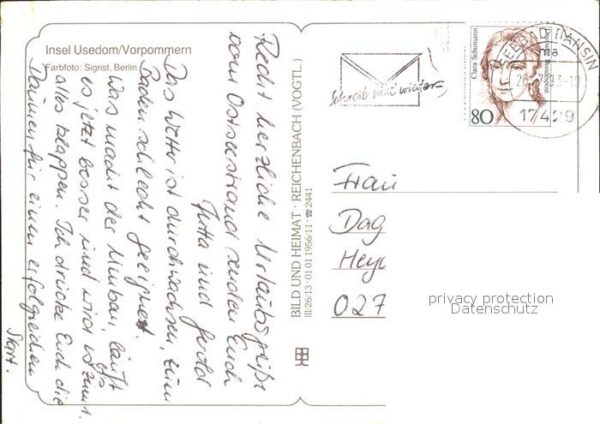 Insel Usedom/Vorpommern
Farbfoto: Sigrist, Berlin
Recht herzliche Urlaubsgrüße
vom Ostseestrand senden Euch
Jutta und
Das Wetter ist durchwachsen, zum
Baden schlecht geeignet.
Was macht der Umbau, läuft
es jetzt besser und wird es zum
alles klappen. Ich drücke Euch die
Daumen für einen erfolgreichen
Start.
BILD UND HEIMAT · REICHENBACH (VOGTL.)
III/26/13 · 01 01 1956/11 · ☎ 2441
Schreib mal wieder
Clara Schumann
80
SEEBAD BANSIN
17429
Frau
Dag
Hey
027
privacy protection
Datenschutz